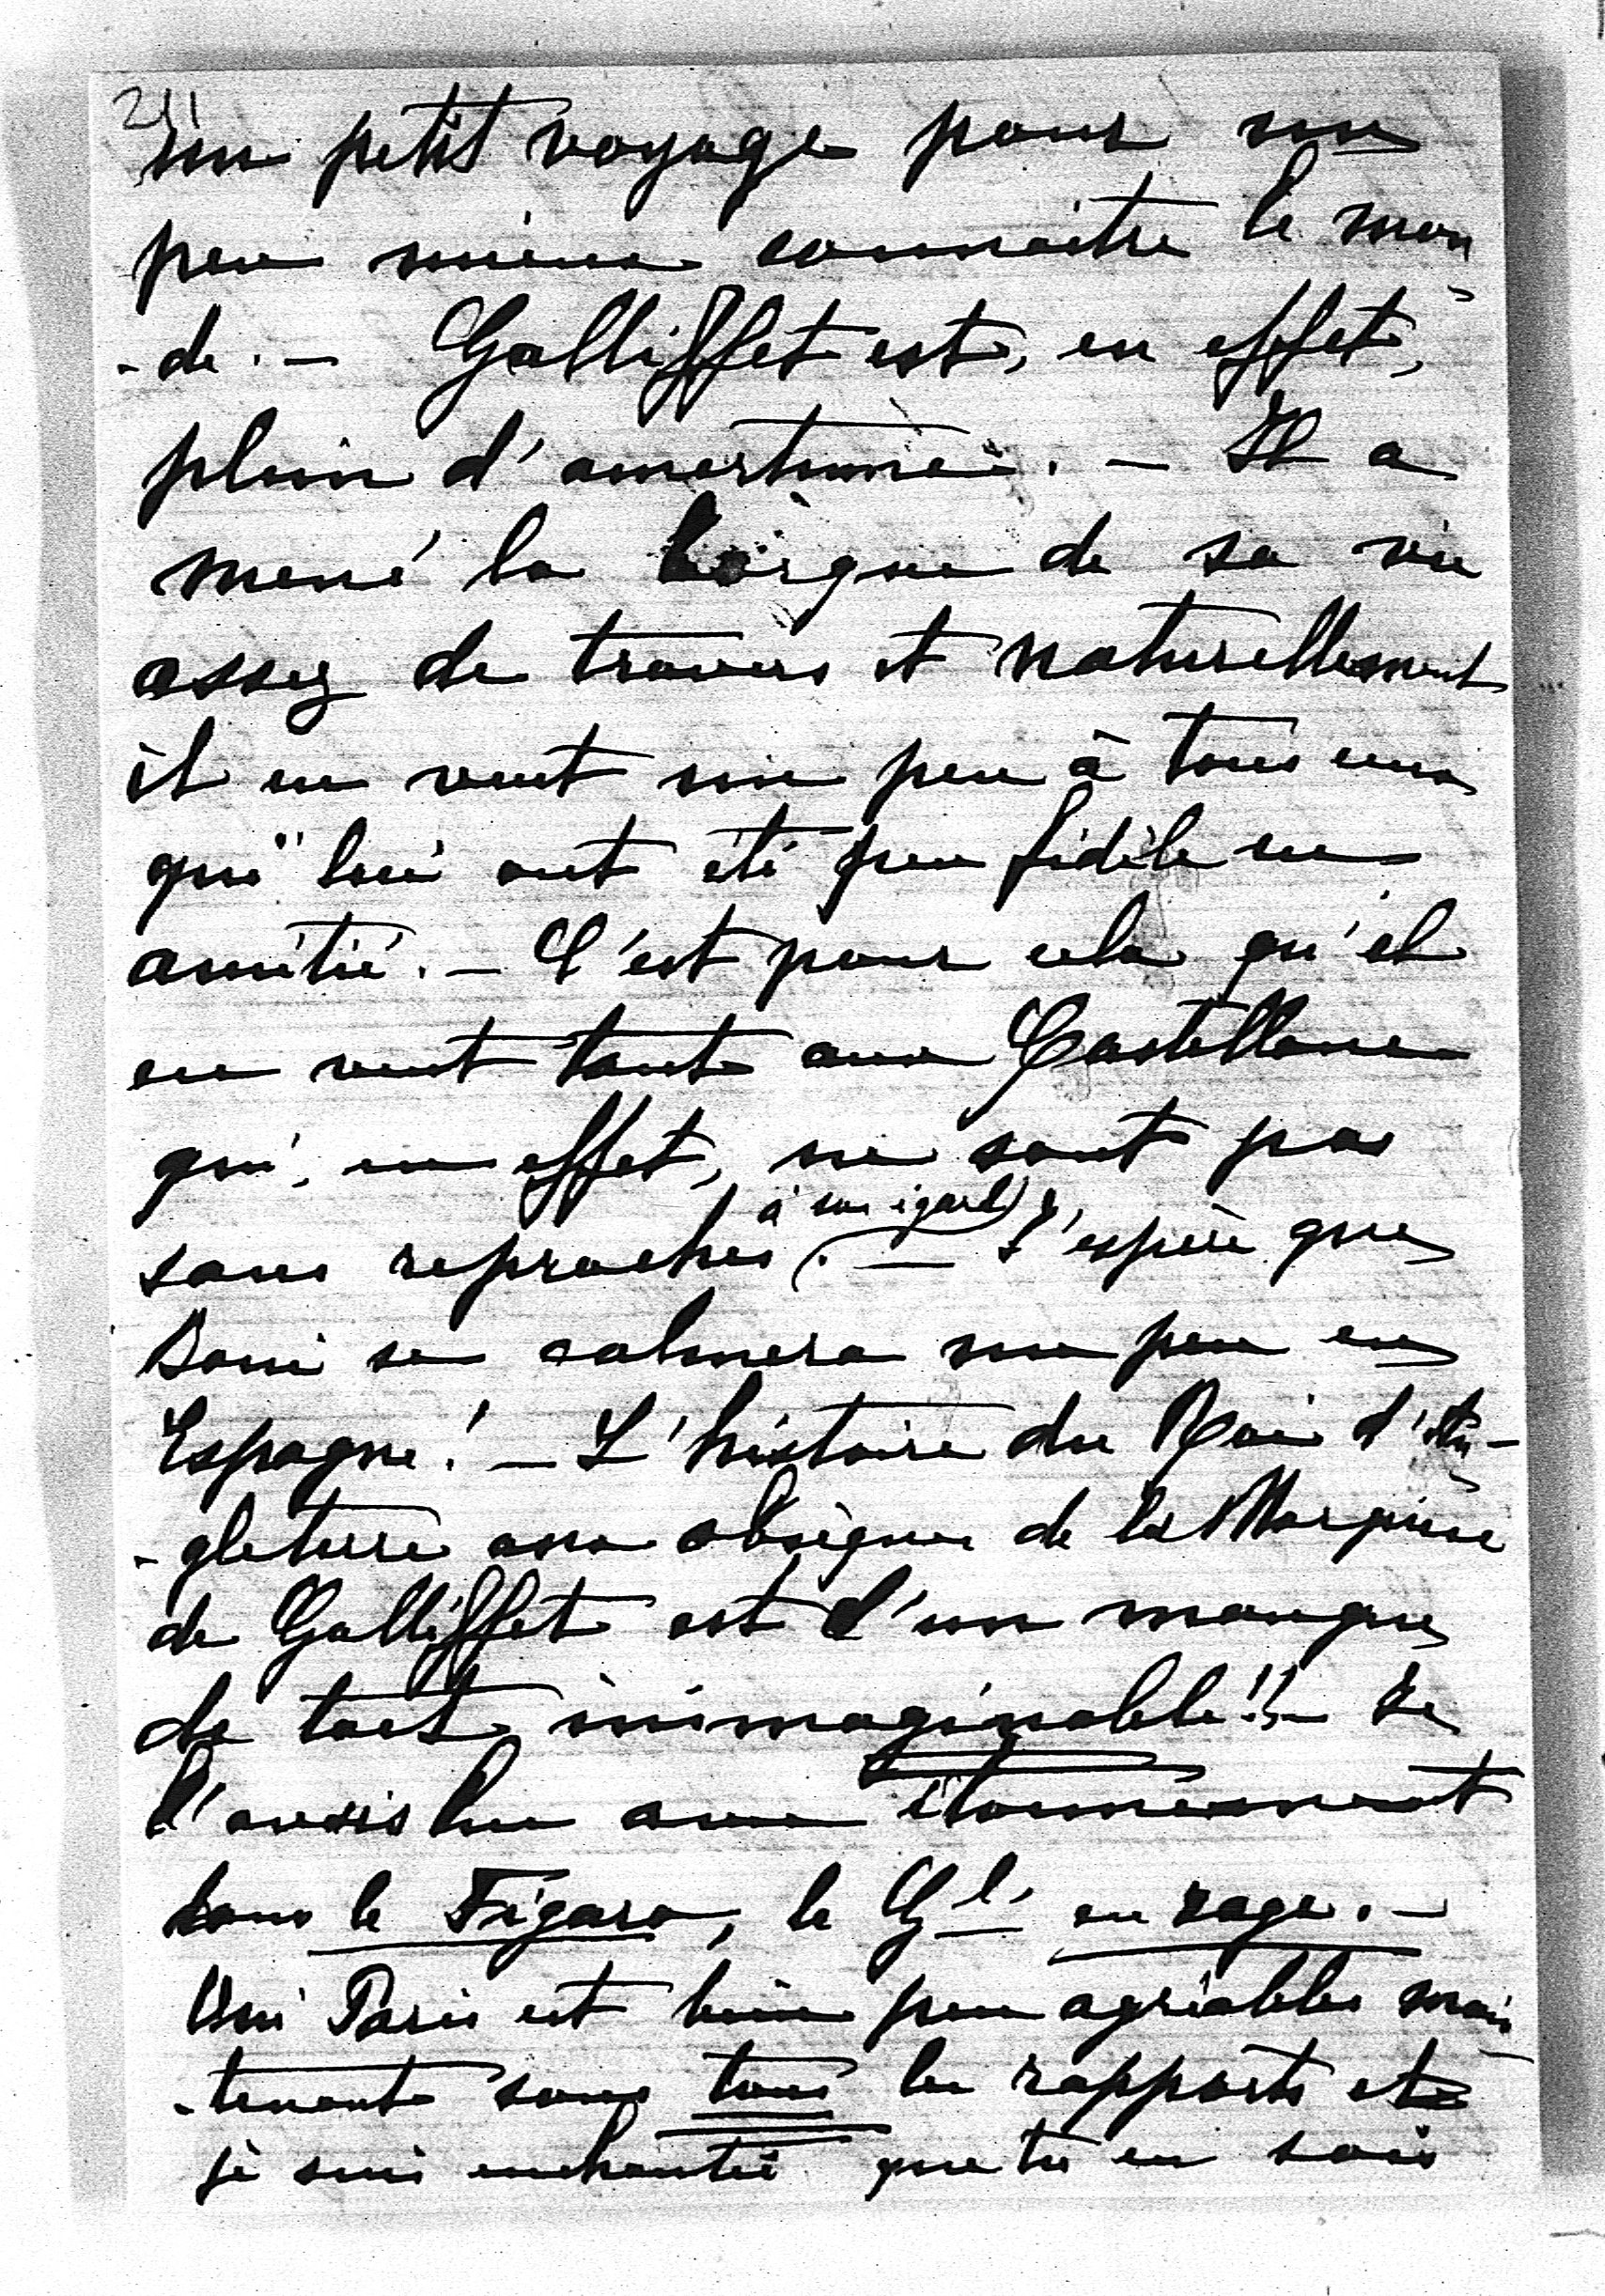 211
un petit voyage pour un
peu mieux connaitre le mon
-de. — Galliffet est, en effet,
plein d'amertume. — Il a
mené la barque de sa vie
assez de travers et naturellement
il en veut un peu à tous ceux
qui lui ont été peu fidèle en
amitié. — C'est pour cela qu'il
en veut tant aux Castellane
qui, en effet, ne sont pas
sans reproches à son égard. — J'espère que
Boni se calmera un peu en
Espagne! — L'histoire du Roi d'An-
-gleterre aux obsèques de la Marquise
de Galliffet est d'un manque
de tact inimaginable!! — Je
l'avais lu avec étonnement
dans le Figaro, le Gl. en rage. —
Oui Paris est bien peu agréable main
-tenant sous tous les rapports et
je suis enchantée que tu en sois